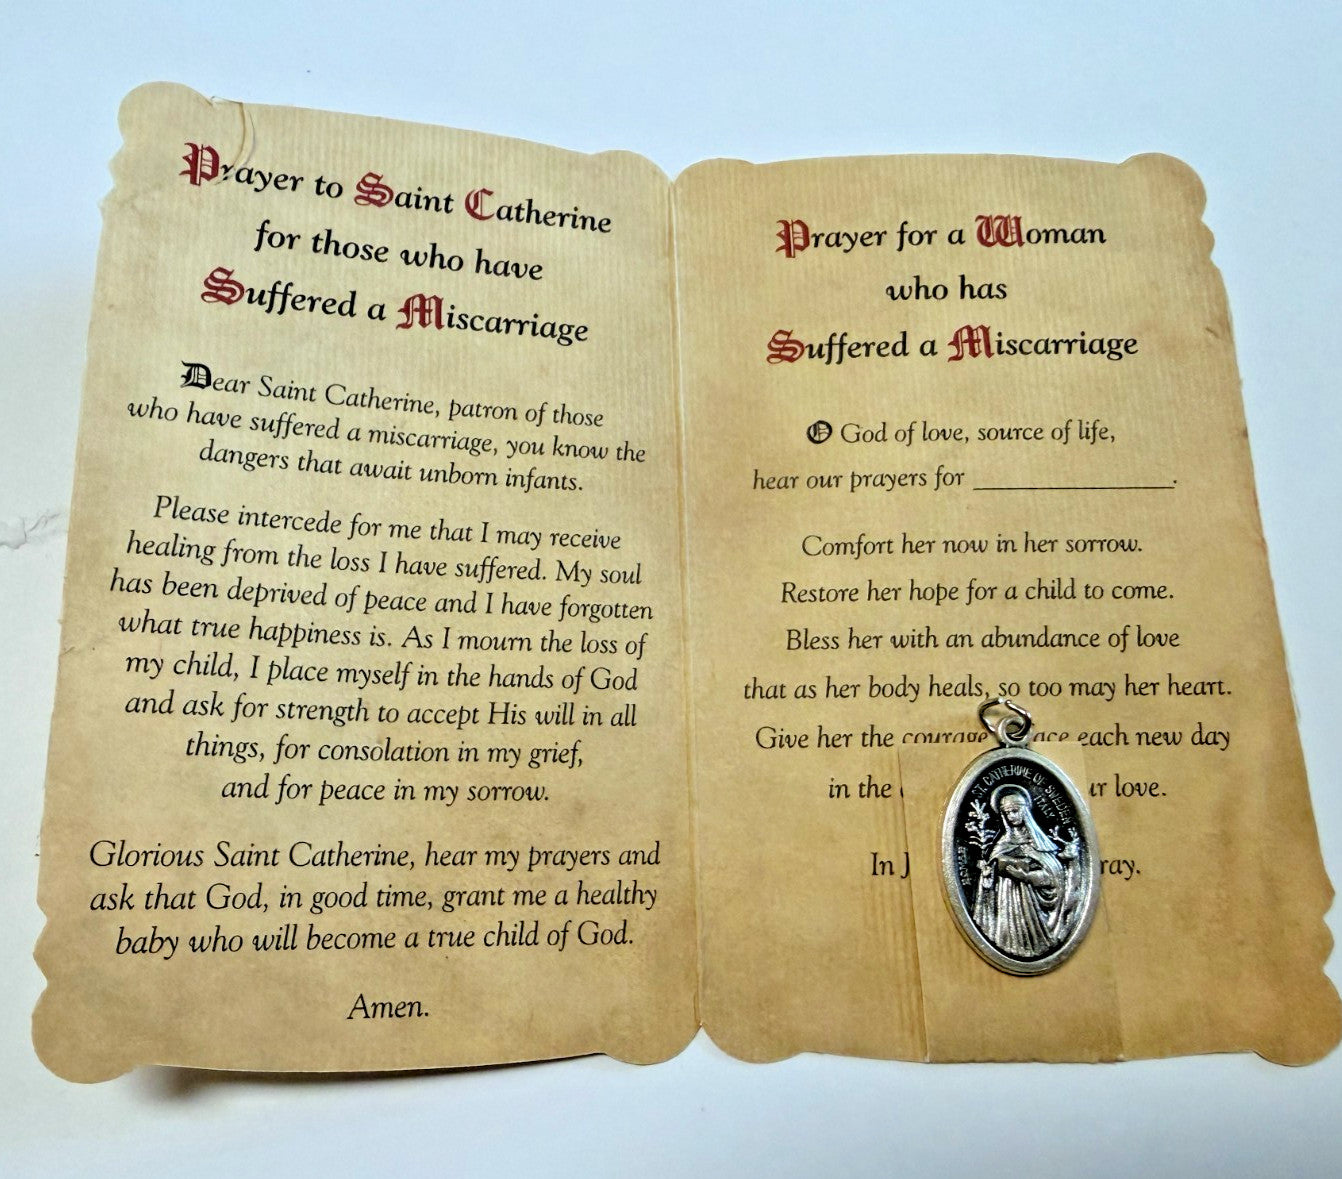 Prayer to Saint Catherine
for those who have
Suffered a Miscarriage
Dear Saint Catherine, patron of those
who have suffered a miscarriage, you know the
dangers that await unborn infants.
Please intercede for me that I may receive
healing from the loss I have suffered. My soul
has been deprived of peace and I have forgotten
what true happiness is. As I mourn the loss of
my child, I place myself in the hands of God
and ask for strength to accept His will in all
things, for consolation in my grief,
and for peace in my sorrow.
Glorious Saint Catherine, hear my prayers and
ask that God, in good time, grant me a healthy
baby who will become a true child of God.
Amen.
Prayer for a Woman
who has
Suffered a Miscarriage
O God of love, source of life,
hear our prayers for _______________.
Comfort her now in her sorrow.
Restore her hope for a child to come.
Bless her with an abundance of love
that as her body heals, so too may her heart.
Give her the courage each new day
in the love.
In
ST. CATHERINE OF SWEDEN
ITALY